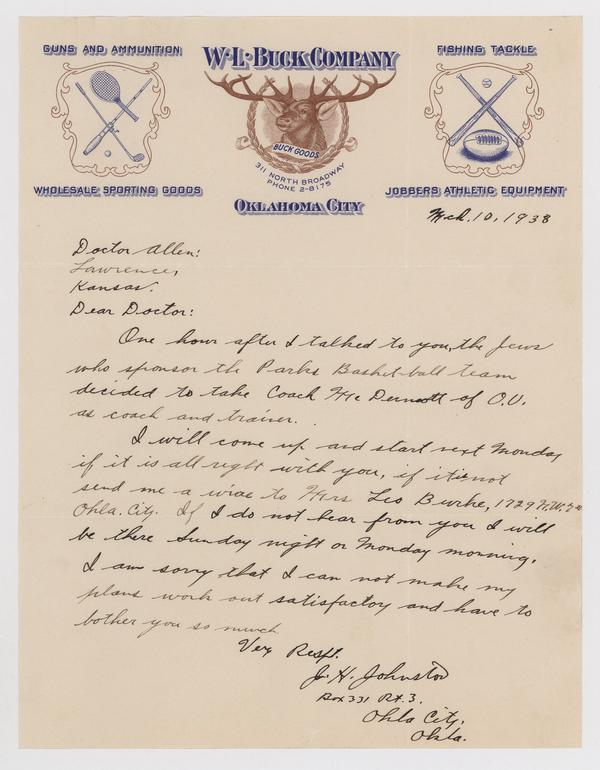 GUNS AND AMMUNITION
W·L·BUCK COMPANY
FISHING TACKLE
BUCK GOODS
311 NORTH BROADWAY
PHONE 2-8175
WHOLESALE SPORTING GOODS
JOBBERS ATHLETIC EQUIPMENT
OKLAHOMA CITY
Mch. 10, 1938
Doctor Allen:
Lawrence,
Kansas.
Dear Doctor:
One hour after I talked to you, the Jews
who sponsor the Parks Basket-ball team
decided to take Coach Mc Dermott of O.U.
as coach and trainer.
I will come up and start next Monday
if it is all right with you, if it is not
send me a wire to Mrs Leo Burke, 1729 N.W.
Okla. City. If I do not hear from you I will
be there Sunday night or Monday morning.
I am sorry that I can not make my
plans work out satisfactory and have to
bother you so much.
Very Respt.
J. H. Johnston
Box 331 Rt. 3.
Okla City,
Okla.